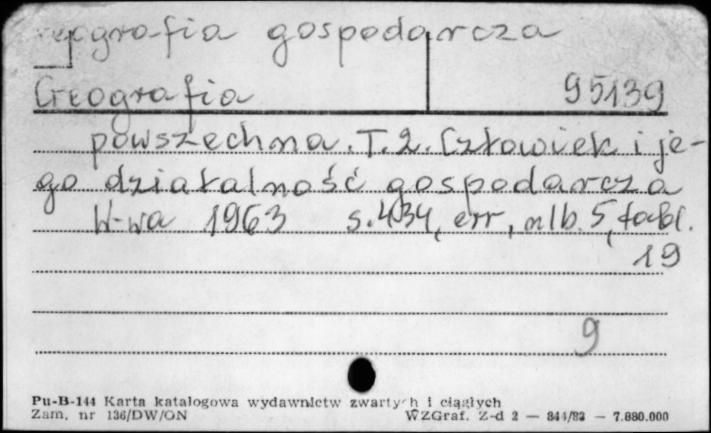 Geografia gospodarcza
Geografia 95139
powszechna. T. 2. Człowiek i je-
go działalność gospodarcza
W-wa 1963 s. 434, err, nlb. 5, tabl.
19
9
Pu-B-144 Karta katalogowa wydawnictw zwartych i ciągłych
Zam. nr 136/DW/ON WZGraf. Z-d 2 — 844/82 — 7.880.000